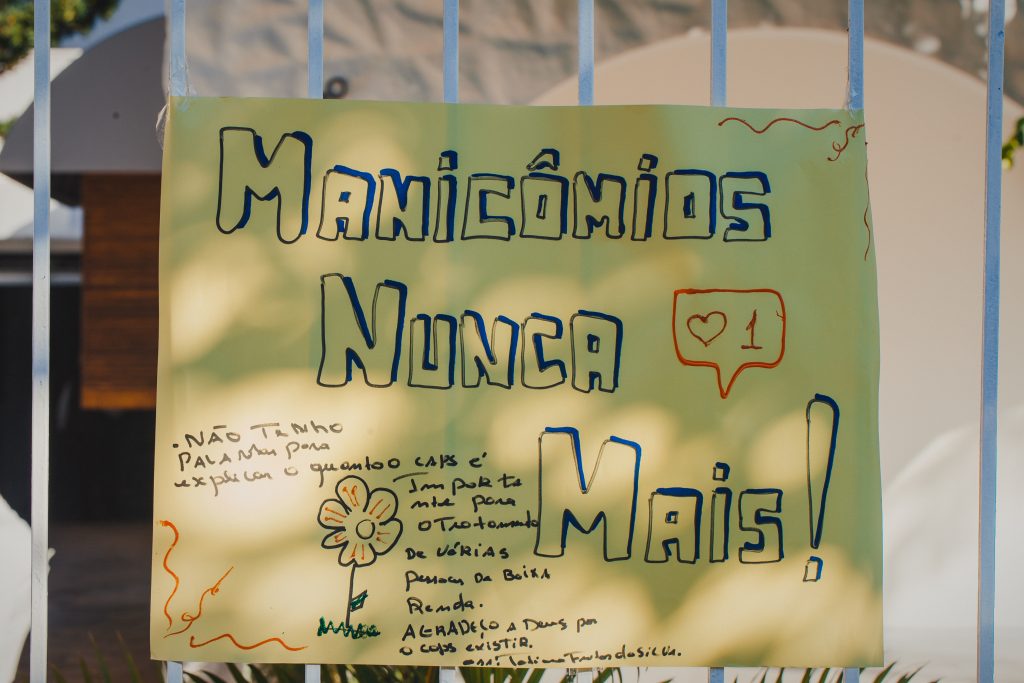 MANICÔMIOS
NUNCA
♡ 1
MAIS!
. NÃO TENHO
PALAVRAS para
explicar o quanto o CAPS é
Importa
nte para
o Tratamento
De VÁRIAS
pessoas De Baixa
Renda.
AGRADEÇO A Deus por
o CAPS EXISTIR.